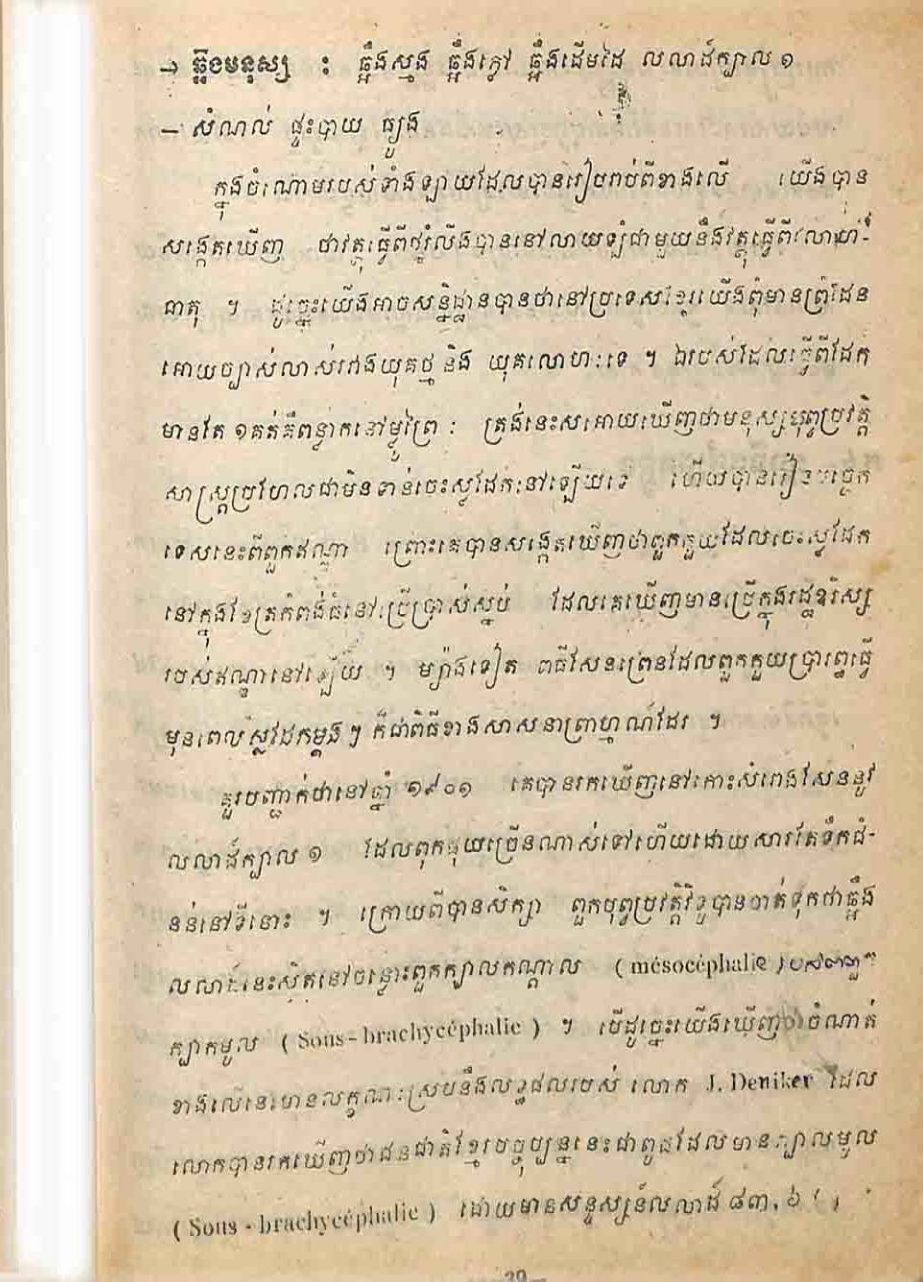 → ឆ្អឹងមនុស្ស : ឆ្អឹងស្មង ឆ្អឹងភ្លៅ ឆ្អឹងដើមដៃ លលាដ៍ក្បាល ១
– សំណល់ ផ្ទះបាយ ធ្យូង
ក្នុងចំណោមរបស់ទាំងឡាយដែលបានរៀបរាប់ពីខាងលើ យើងបាន
សង្កេតឃើញ ថាវត្ថុធ្វើពីថ្មរំលីងបាននៅលាយឡំជាមួយនឹងវត្ថុធ្វើពីលោហ-
ធាតុ ។ ដូច្នេះយើងអាចសន្និដ្ឋានបានថានៅប្រទេសខ្មែរយើងពុំមានព្រំដែន
អោយច្បាស់លាស់រវាងយុគថ្ម និង យុគលោហៈទេ ។ ឯរបស់ដែលធ្វើពីដែក
មានតែ ១គត់គឺពន្លាកនៅម្លូព្រៃ : ត្រង់នេះសអោយឃើញថាមនុស្សបុព្វប្រវត្តិ
សាស្ត្រប្រហែលជាមិនទាន់ចេះស្លដែកនៅឡើយទេ ហើយបានរៀនបច្ចេក
ទេសនេះពីពួកឥណ្ឌា ព្រោះគេបានសង្កេតឃើញថាពួកកួយដែលចេះស្លដែក
នៅក្នុងខែត្រកំពង់ធំនៅប្រើប្រាស់ស្នប់ ដែលគេឃើញមានប្រើក្នុងរដ្ឋឧរិស្ស
របស់ឥណ្ឌានៅឡើយ ។ ម្យ៉ាងទៀត ពិធីសែនព្រេនដែលពួកកួយប្រារព្ធធ្វើ
មុនពេលស្លដែកម្តងៗ ក៏ជាពិធីខាងសាសនាព្រាហ្មណ៍ដែរ ។
គួរបញ្ជាក់ថានៅឆ្នាំ ១៩០១ គេបានរកឃើញនៅកោះសំរោងសែននូវ
លលាដ៍ក្បាល ១ ដែលពុកផុយច្រើនណាស់ទៅហើយដោយសារតែទឹកជំ-
នន់នៅទីនោះ ។ ក្រោយពីបានសិក្សា ពួកបុព្វប្រវត្តិវិទូបានចាត់ទុកថាឆ្អឹង
លលាដ៍នេះស្ថិតនៅចន្លោះពួកក្បាលកណ្តាល ( mésocéphalie )
ក្បាកមូល ( Sous-brachycéphalie ) ។ បើដូច្នេះយើងឃើញថាចំណាត់
ខាងលើនេះមានលក្ខណៈស្របនឹងលទ្ធផលរបស់ លោក J. Deniker ដែល
លោកបានរកឃើញថាជនជាតិខ្មែរបច្ចុប្បន្ននេះជាពូជដែលមានក្បាលមូល
( Sous - brachycéphalie ) ដោយមានសន្ទស្សន៍លលាដ៍ ៨៣,៦
—39—